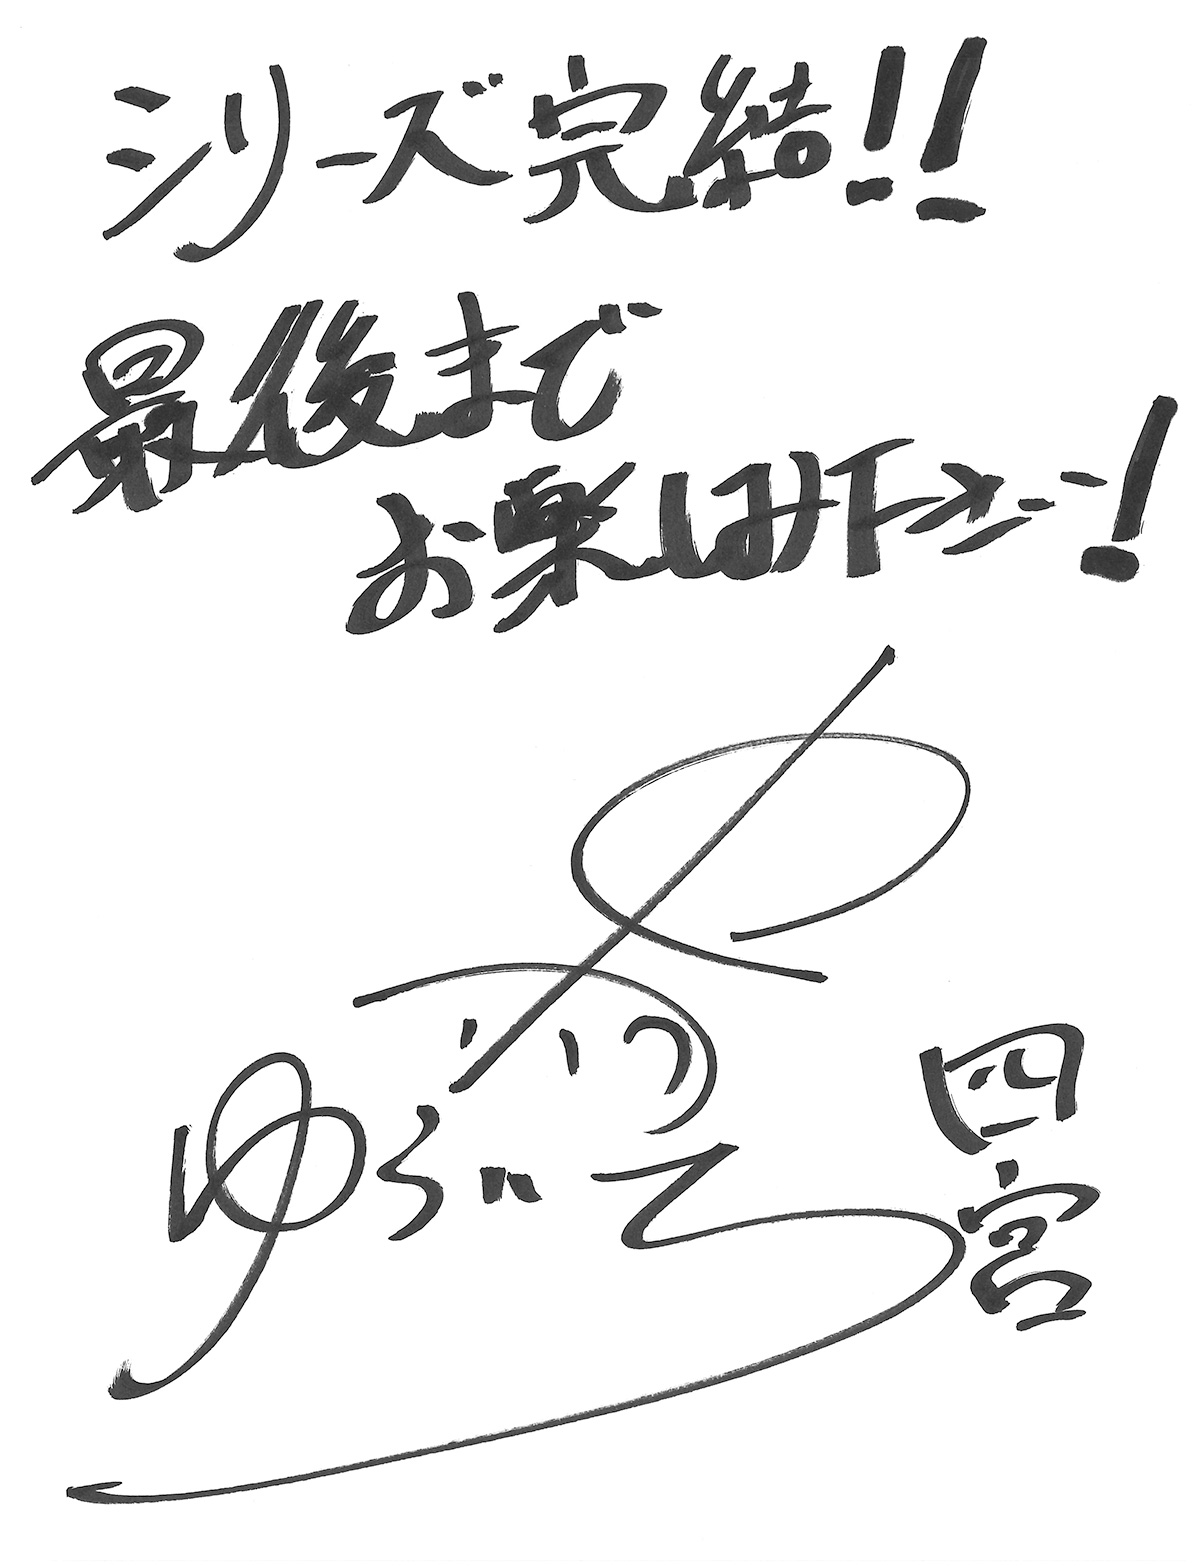 シリーズ完結!!
最後まで
お楽しみ下さい!
四宮